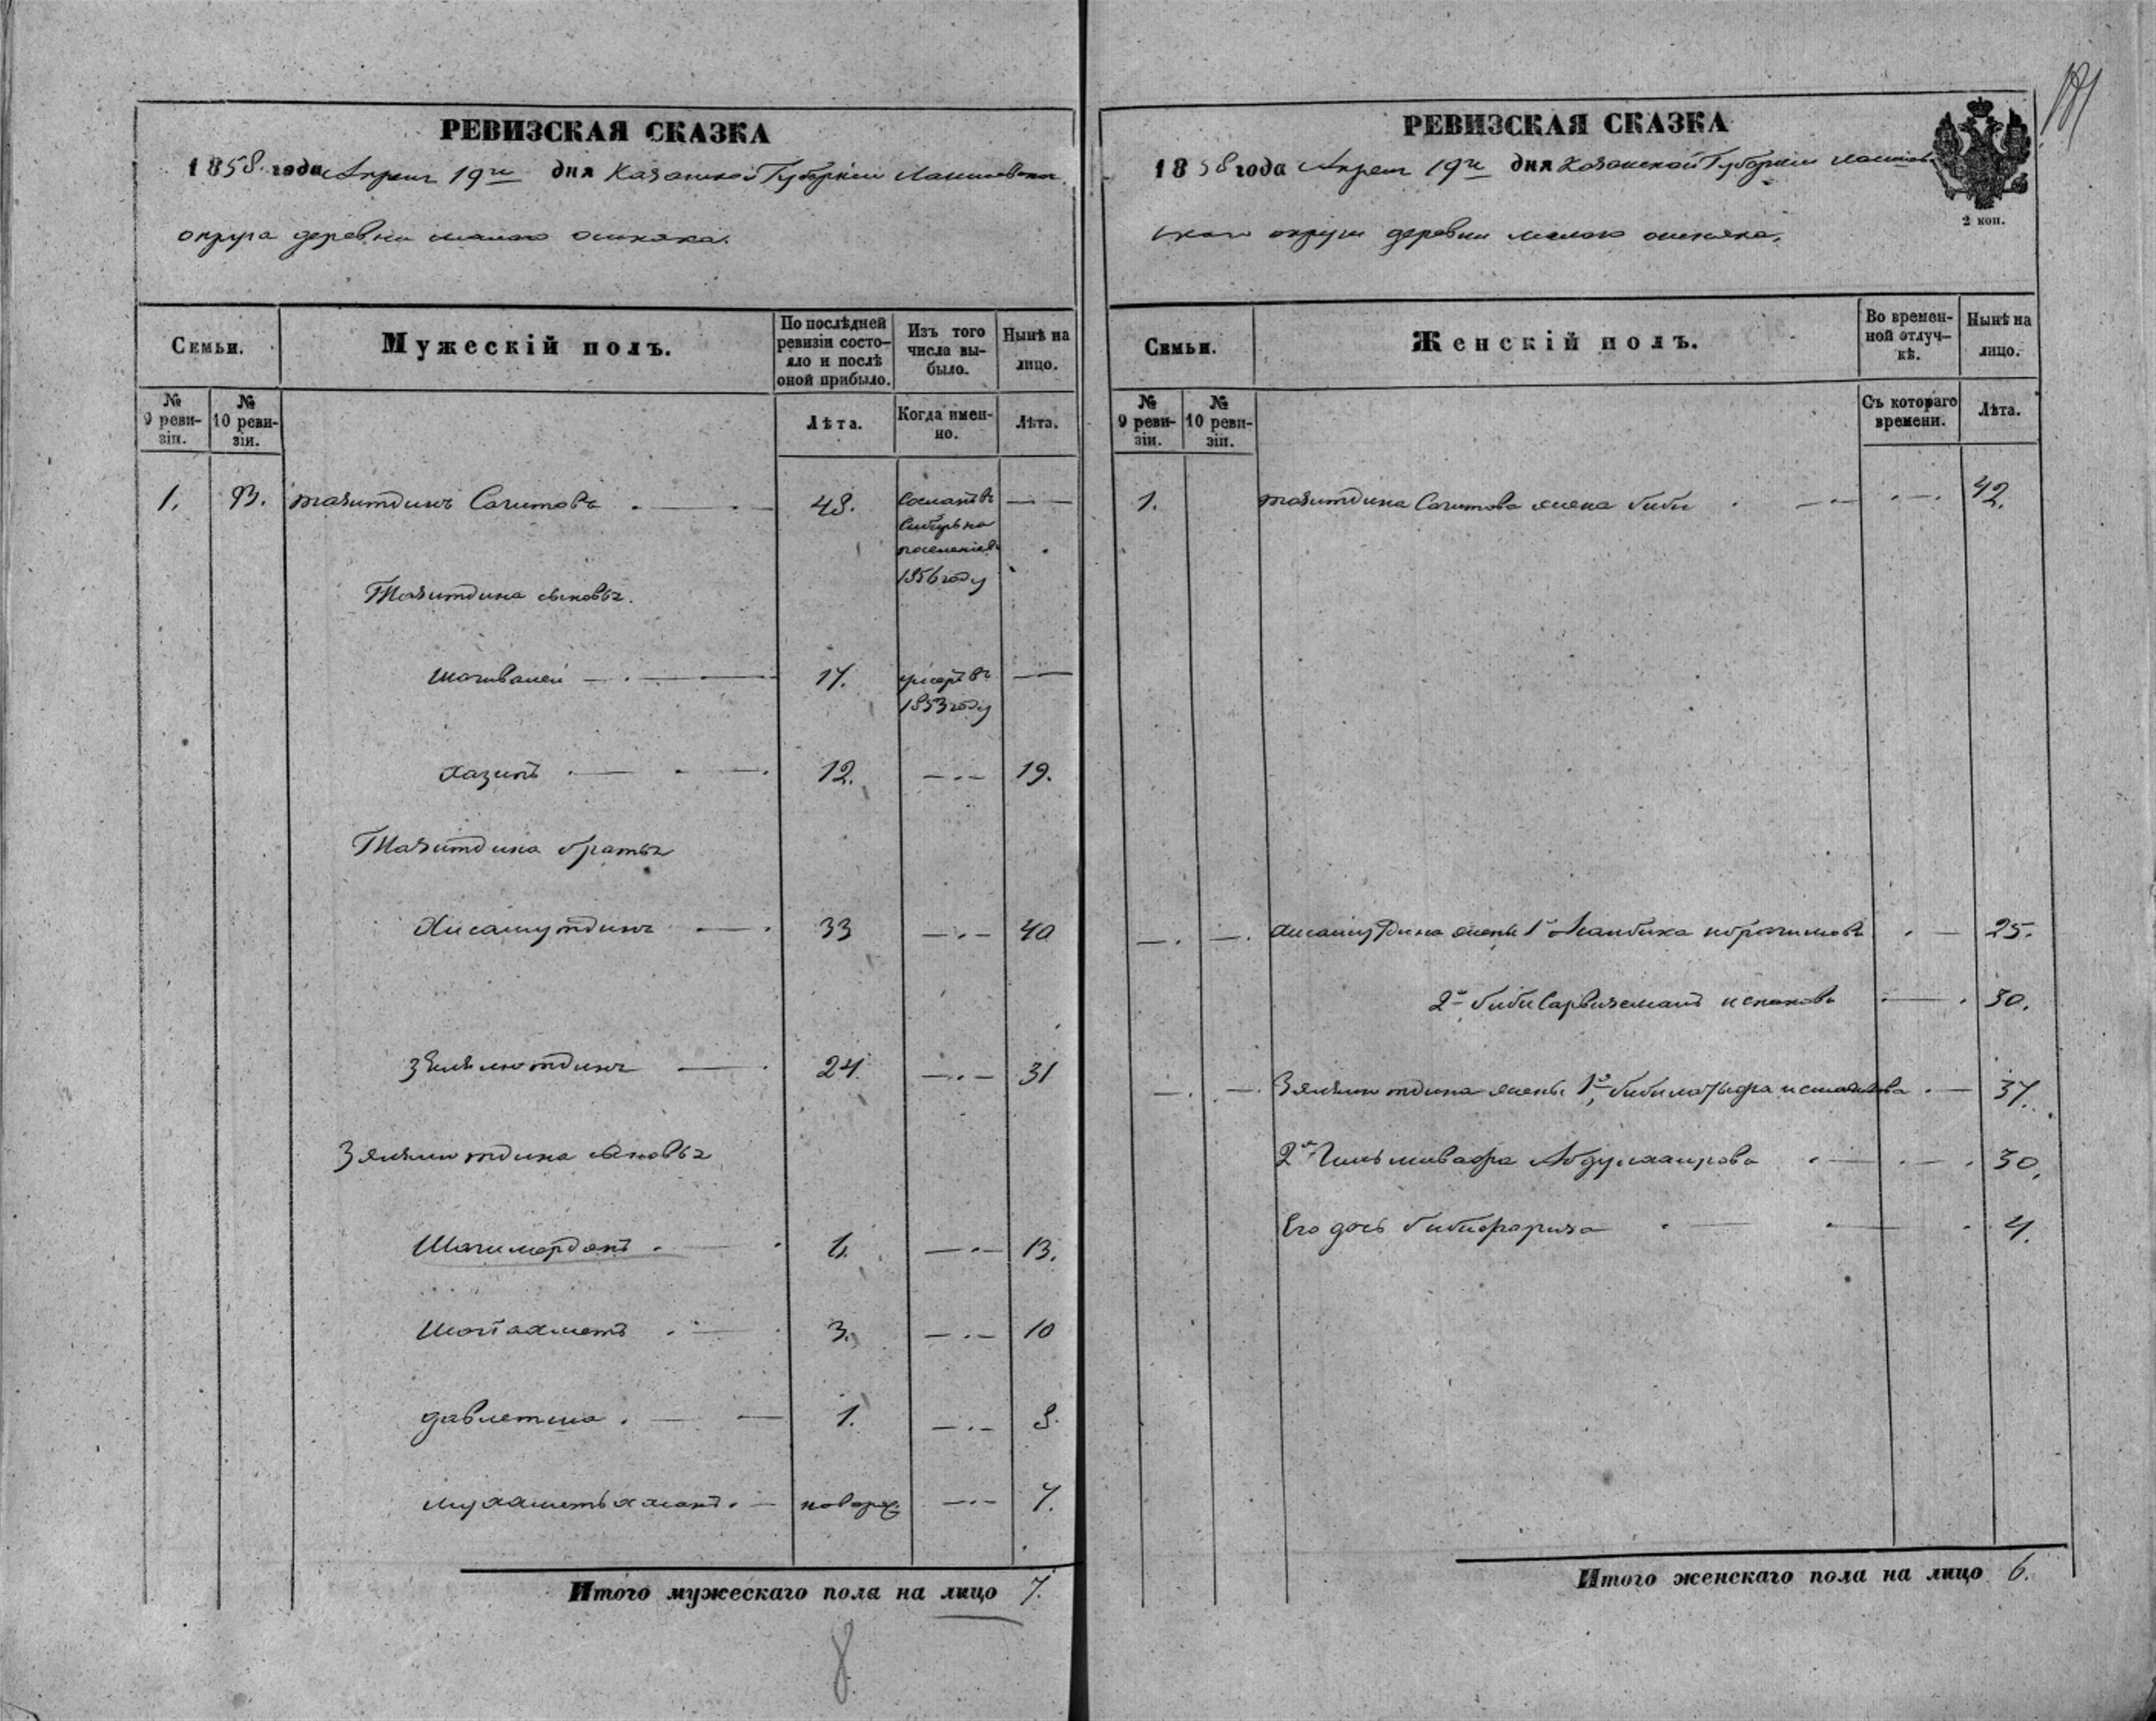 РЕВИЗСКАЯ СКАЗКА
1858 года Апреля 19го дня Казанской Губернии Лаишевскаго
округа деревни малаго ошняка.
Семьи.
Мужескій полъ.
По послѣдней ревизіи состояло и послѣ оной прибыло.
Изъ того числа выбыло.
Нынѣ на лицо.
№ 9 ревизіи.
№ 10 ревизіи.
Лѣта.
Когда именно.
Лѣта.
1. тазитдинъ Сагитовъ 48. Сосланъ въ
Сибирь на
поселеніе въ
1856 году
Тазитдина сыновья.
Шагивалей 17. умеръ въ
1853 году
Хазипъ 12. 19.
Тазитдина братья
Хисамутдинъ 33 40
Зялялютдинъ 24 31
Зялялютдина сыновья
Шагимарданъ 6. 13.
Шагіахметъ 3. 10
давлетша 1. 8.
мухаметьхазанъ новорож. 7.
Итого мужескаго пола на лицо 7.
8
РЕВИЗСКАЯ СКАЗКА
1858 года Апреля 19го дня Казанской Губерніи Лаишев
скаго округа деревни малаго ошняка.
2 коп.
Семьи.
Женскій полъ.
Во временной отлучкѣ.
Нынѣ на лицо.
№ 9 ревизіи.
№ 10 ревизіи.
Съ котораго времени.
Лѣта.
1. тазитдина Сагитова жена биби 42.
хисамутдина жены 1я ибрагимова 25.
2я 30.
Зялялютдина жены 1я 37.
2я 30.
Его дочь бибифариза 4.
Итого женскаго пола на лицо 6.